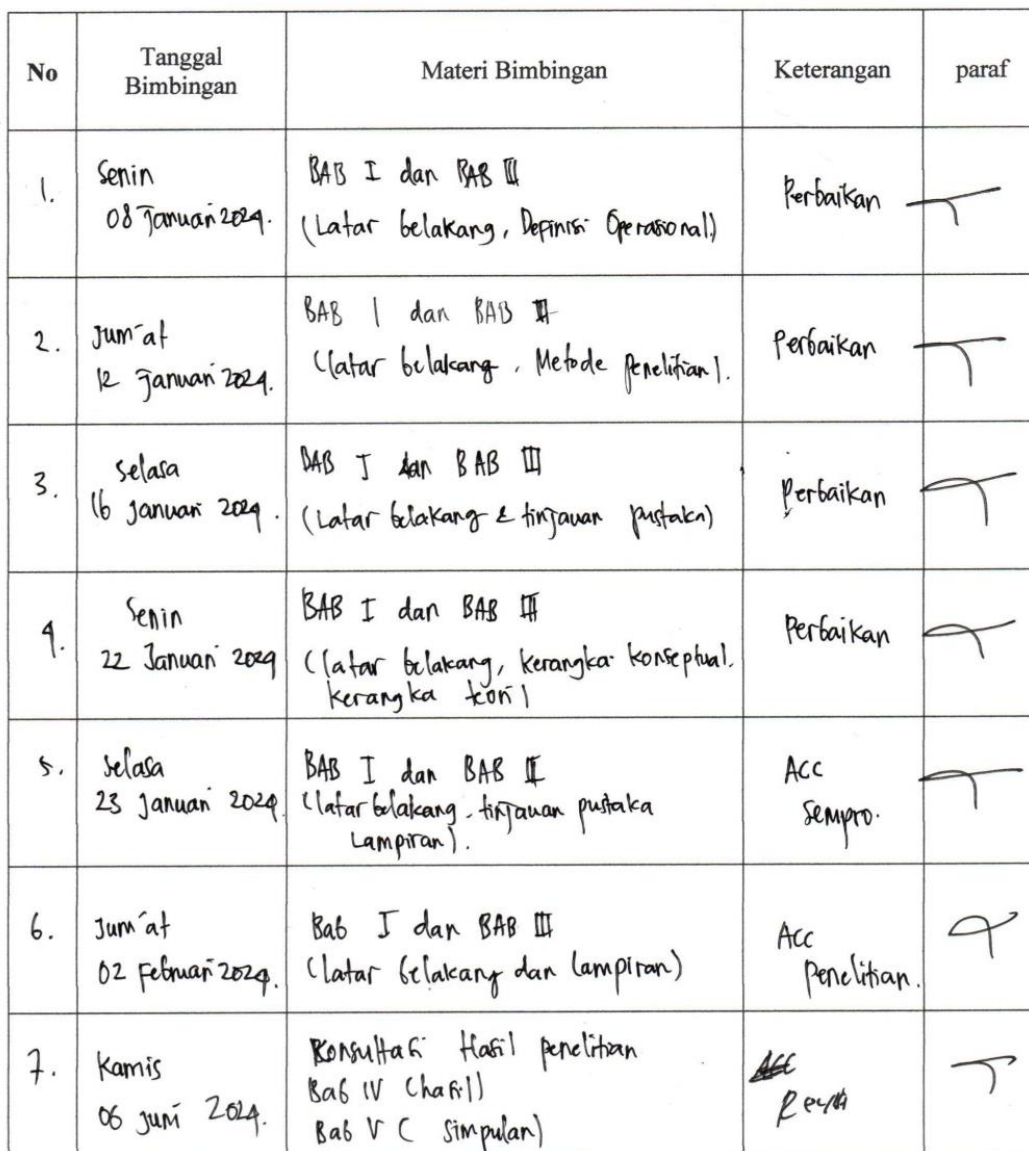 No
Tanggal
Bimbingan
Materi Bimbingan
Keterangan
paraf
1.
Senin
08 Januari 2024.
BAB I dan BAB III
(Latar belakang, Definisi Operasional)
Perbaikan
2.
Jum'at
12 Januari 2024.
BAB I dan BAB II
(latar belakang, Metode penelitian).
Perbaikan
3.
Selasa
16 Januari 2024.
BAB I dan BAB III
(Latar belakang & tinjauan pustaka)
Perbaikan
4.
Senin
22 Januari 2024
BAB I dan BAB III
(latar belakang, kerangka konseptual.
kerangka teori)
Perbaikan
5.
Selasa
23 Januari 2024.
BAB I dan BAB II
(latar belakang, tinjauan pustaka
Lampiran).
ACC
Sempro.
6.
Jum'at
02 Februari 2024.
Bab I dan BAB III
(latar belakang dan lampiran)
Acc
Penelitian.
7.
Kamis
06 Juni 2024.
Konsultasi Hasil penelitian
Bab IV (hasil)
Bab V ( Simpulan)